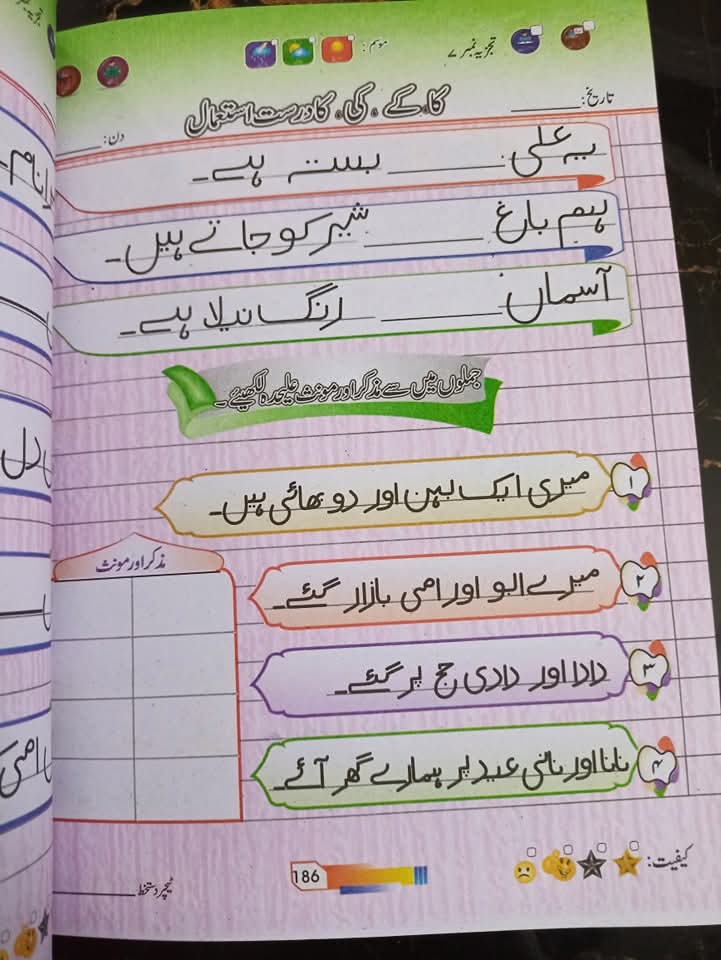 موسم:
تجزیہ نمبر ۷
تاریخ:
کا، کے، کی، کا درست استعمال
دن:
یہ علی ________ بستہ ہے۔
ہم باغ ________ شیر کو جاتے ہیں۔
آسماں ________ رنگ نیلا ہے۔
جملوں میں سے مذکر اور مونث علیحدہ لکھیئے۔
۱ میری ایک بہن اور دو بھائی ہیں۔
مذکر اور مونث
۲ میرے ابو اور امی بازار گئے۔
۳ دادا اور دادی حج پر گئے۔
۴ نانا اور نانی عید پر ہمارے گھر آئے۔
کیفیت:
186
ٹیچر دستخط